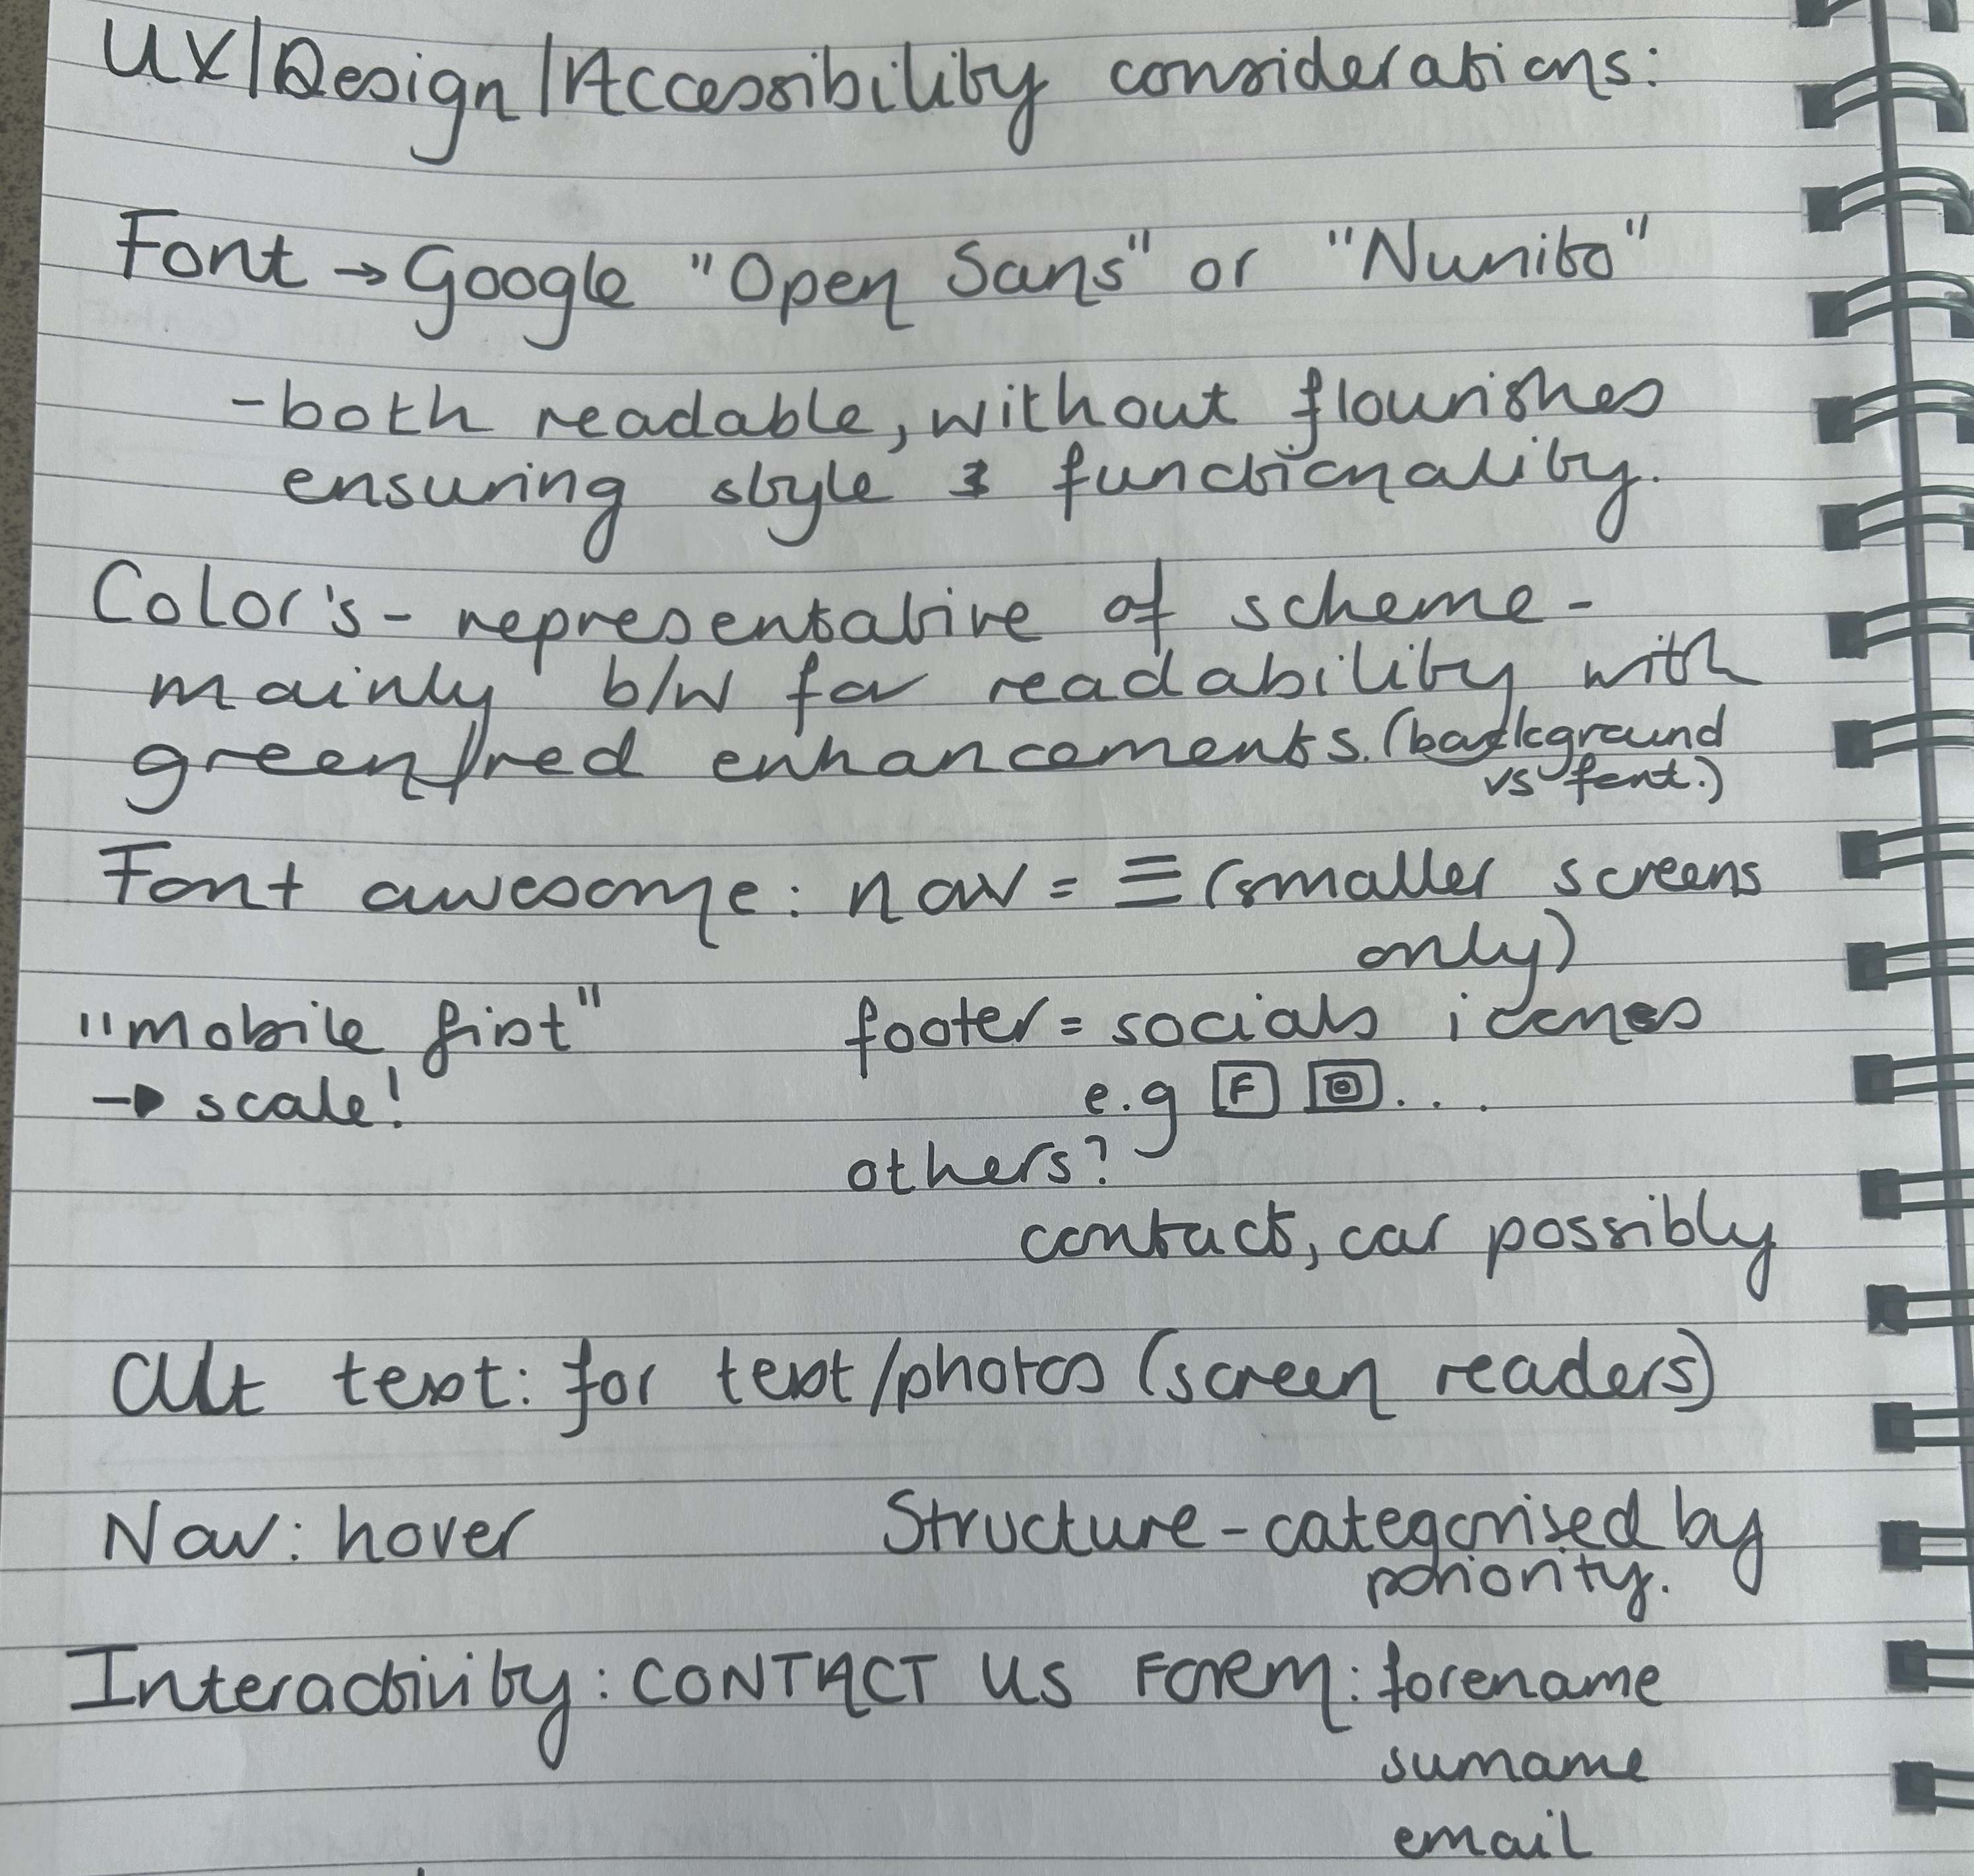 UX/Design/Accessibility considerations:
Font → Google "Open Sans" or "Nunito"
- both readable, without flourishes
ensuring style & functionality.
Color's - representative of scheme -
mainly b/w for readability with
green/red enhancements. (background
vs font.)
Font awesome: nav = ☰ (smaller screens
only)
"mobile first"
→ scale!
footer = socials icones
e.g F ...
others?
contact, car possibly
Alt text: for text/photos (screen readers)
Nav: hover
Structure - categorised by
priority.
Interactivity: CONTACT US FORM: forename
surname
email